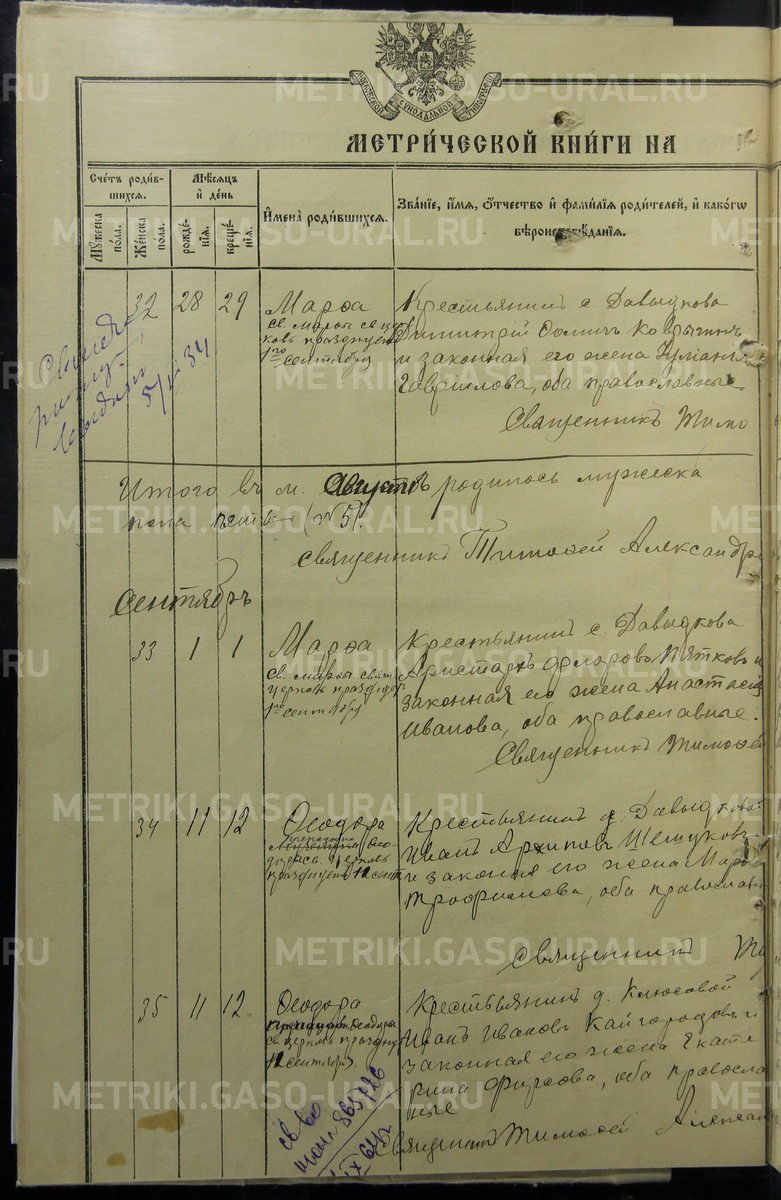 МОСКОВСКОЙ СѴНОДАЛЬНОЙ ТИПОГРАФІИ
МЕТРИ́ЧЕСКОЙ КНИ́ГИ НА
Счетъ роди́в-
шихся.
Му́жеска
по́ла.
Же́нска
по́ла.
Мѣсяцъ
и҆ де́нь
рожде́-
нїѧ.
креще́-
нїѧ.
И҆мена̀ роди́вшихся.
Зва́нїе, и҆́мѧ, ѻ҆́тчество и҆ фами́лїѧ роди́телей, и҆ како́гѡ
вѣроисповѣ́данїѧ.
32 28 29
Марѳа
св. Марѳы св цер
ковь празднуетъ
1го сентября
Крестьянинъ с. Давыдкова
Димитрій Ѳомичъ
и законная его жена
Гавріилова, оба православные
Священникъ Тимо
5/I 34
Итого въ м. Августѣ родилось мужеска
пола пять (№ 5).
Священникъ Тимоѳей Александр
Сентябрь
33 1 1
Марѳа
св. Марѳы свят
церковь празднует
1го сентября
Крестьянинъ с. Давыдкова
Аристархъ Флоровъ Пятковъ и
законная его жена Анастасія
Иванова, оба православные.
Священникъ Тимоѳей
34 11 12
Ѳеодора
преподобн
Ѳео-
доры св церковь
празднуетъ 11 сент
Крестьянинъ д. Давыдкова
Иванъ Архиповъ Шешуковъ
и законная его жена Марѳа
Трофимова, оба православн
Священникъ Ти
35 11 12
Ѳеодора
преподоб. Ѳеодоры
св церковь празднуе
11 сентября.
Крестьянинъ д. Клюсовой
Иванъ Ивановъ Кайгородовъ и
законная его жена Екате
рина Фирсова, оба правосла
вные
Священникъ Тимоѳей Алексан
св во
865726
IX 64г
METRIKI.GASO-URAL.RU